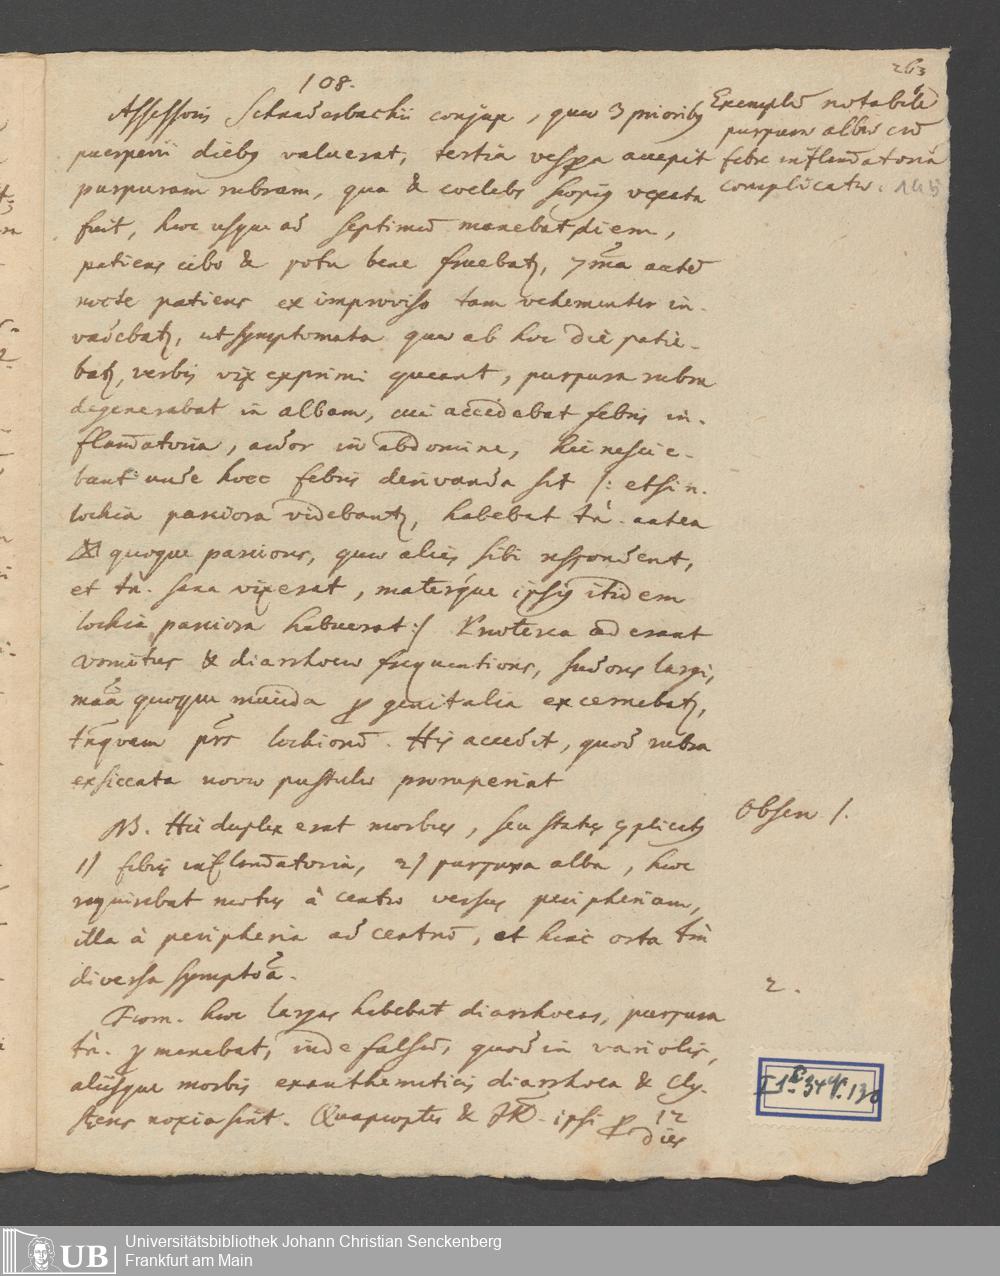 263
108.
Assessoris Schnaderbachii conjux, quae 3 prioribq
puerperii diebq valuerat, tertia vespera accepit
purpuram rubram, qua & coelebs saepiq vexata
fuit, haec usque ad septimum manebat diem,
patiens cibo & potu bene fruebatr, 7ma autem
nocte patiens ex improviso tam vehementer in-
vadebatr, ut symptomata quae ab hoc die patie-
batr, verbis vix exprimi queant, purpura rubra
degenerabat in albam, cui accedebat febris in-
flamatoria, ardor in abdomine, hic nescie-
bant unde haec febris derivanda sit /: etsi n.
lochia parciora videbantr, habebat tn. antea
quoque parciores, quae aliis sibi respondent,
et tn. sana vixerat, materque ipsiq itidem
lochia parciora habuerat :/ Praeterea aderant
vomitus & diarrhoeae frequentiores, sudores largi,
maa quoque mucida per genitalia excernebatr,
tnquam pars lochiorum. His accedit, quod rubra
exsiccata novae pustulae proruperint
NB. Hic duplex erat morbus, seu status cplicatq
1) febris inflamatoria, 2) purpura alba, haec
requirebat motus à centro versus peripheriam,
illa à peripheria ad centrum, et hinc orta tm
diversa symptoa.
Foem. haec largas habebat diarrhoeas, purpura
tn. manebat, inde falsum, quod in variolis,
aliisque morbis exanthematicis diarrhoea & Cly-
steres noxia sint. Quapropter & ipsi per 12
dies
Exemplum notabile
purpurae albae cum
febre inflamatoria
complicatae. 145
Observ. 1.
2.
I 1 E 34 qr. 130
UB
Universitätsbibliothek Johann Christian Senckenberg
Frankfurt am Main